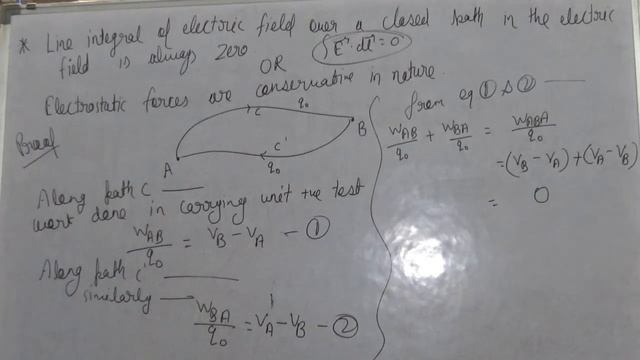 * Line integral of electric field over a closed path in the electric
field is always zero ∫E⃗.dl⃗ = 0
OR
Electrostatic forces are conservative in nature.
Proof
A
c
q₀
B
c'
q₀
Along path c ——
work done in carrying unit +ve test
W_AB/q₀ = V_B - V_A - ①
Along path c' ——
similarly —
W_BA/q₀ = V_A - V_B - ②
from eq ① & ② ——
W_AB/q₀ + W_BA/q₀ = W_ABA/q₀
= (V_B - V_A) + (V_A - V_B)
= 0